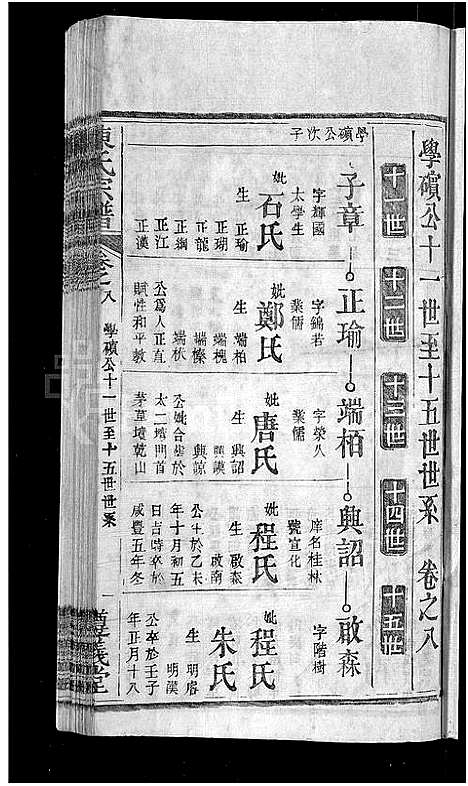 學礦公十一世至十五世世系 卷之八
十一世 十二世 十三世 十四世 十五世
學礦公次子
子章 正瑜 端柏 興詔 啟森
字輝國
太學生
妣石氏
生 正瑜
正瑚
正龍
正綱
正江
正漢
字錦若
業儒
妣鄭氏
生 端柏
端槐
端榛
端楸
公爲人正直
賦性和平教
字榮八
業儒
妣唐氏
生 興詔
興謨
興諒
公妣合塟於
太二㙮門首
茅草墳乾山
庠名桂林
號宣化
妣程氏
生 啟森
啟南
公生於乙未
年十月初五
日吉時卒於
咸豐五年冬
字階樹
妣程氏
朱氏
生 明睿
明漢
公卒於壬子
年正月十八
陳氏宗譜 卷之八 學礦公十一世至十五世世系 一
義堂